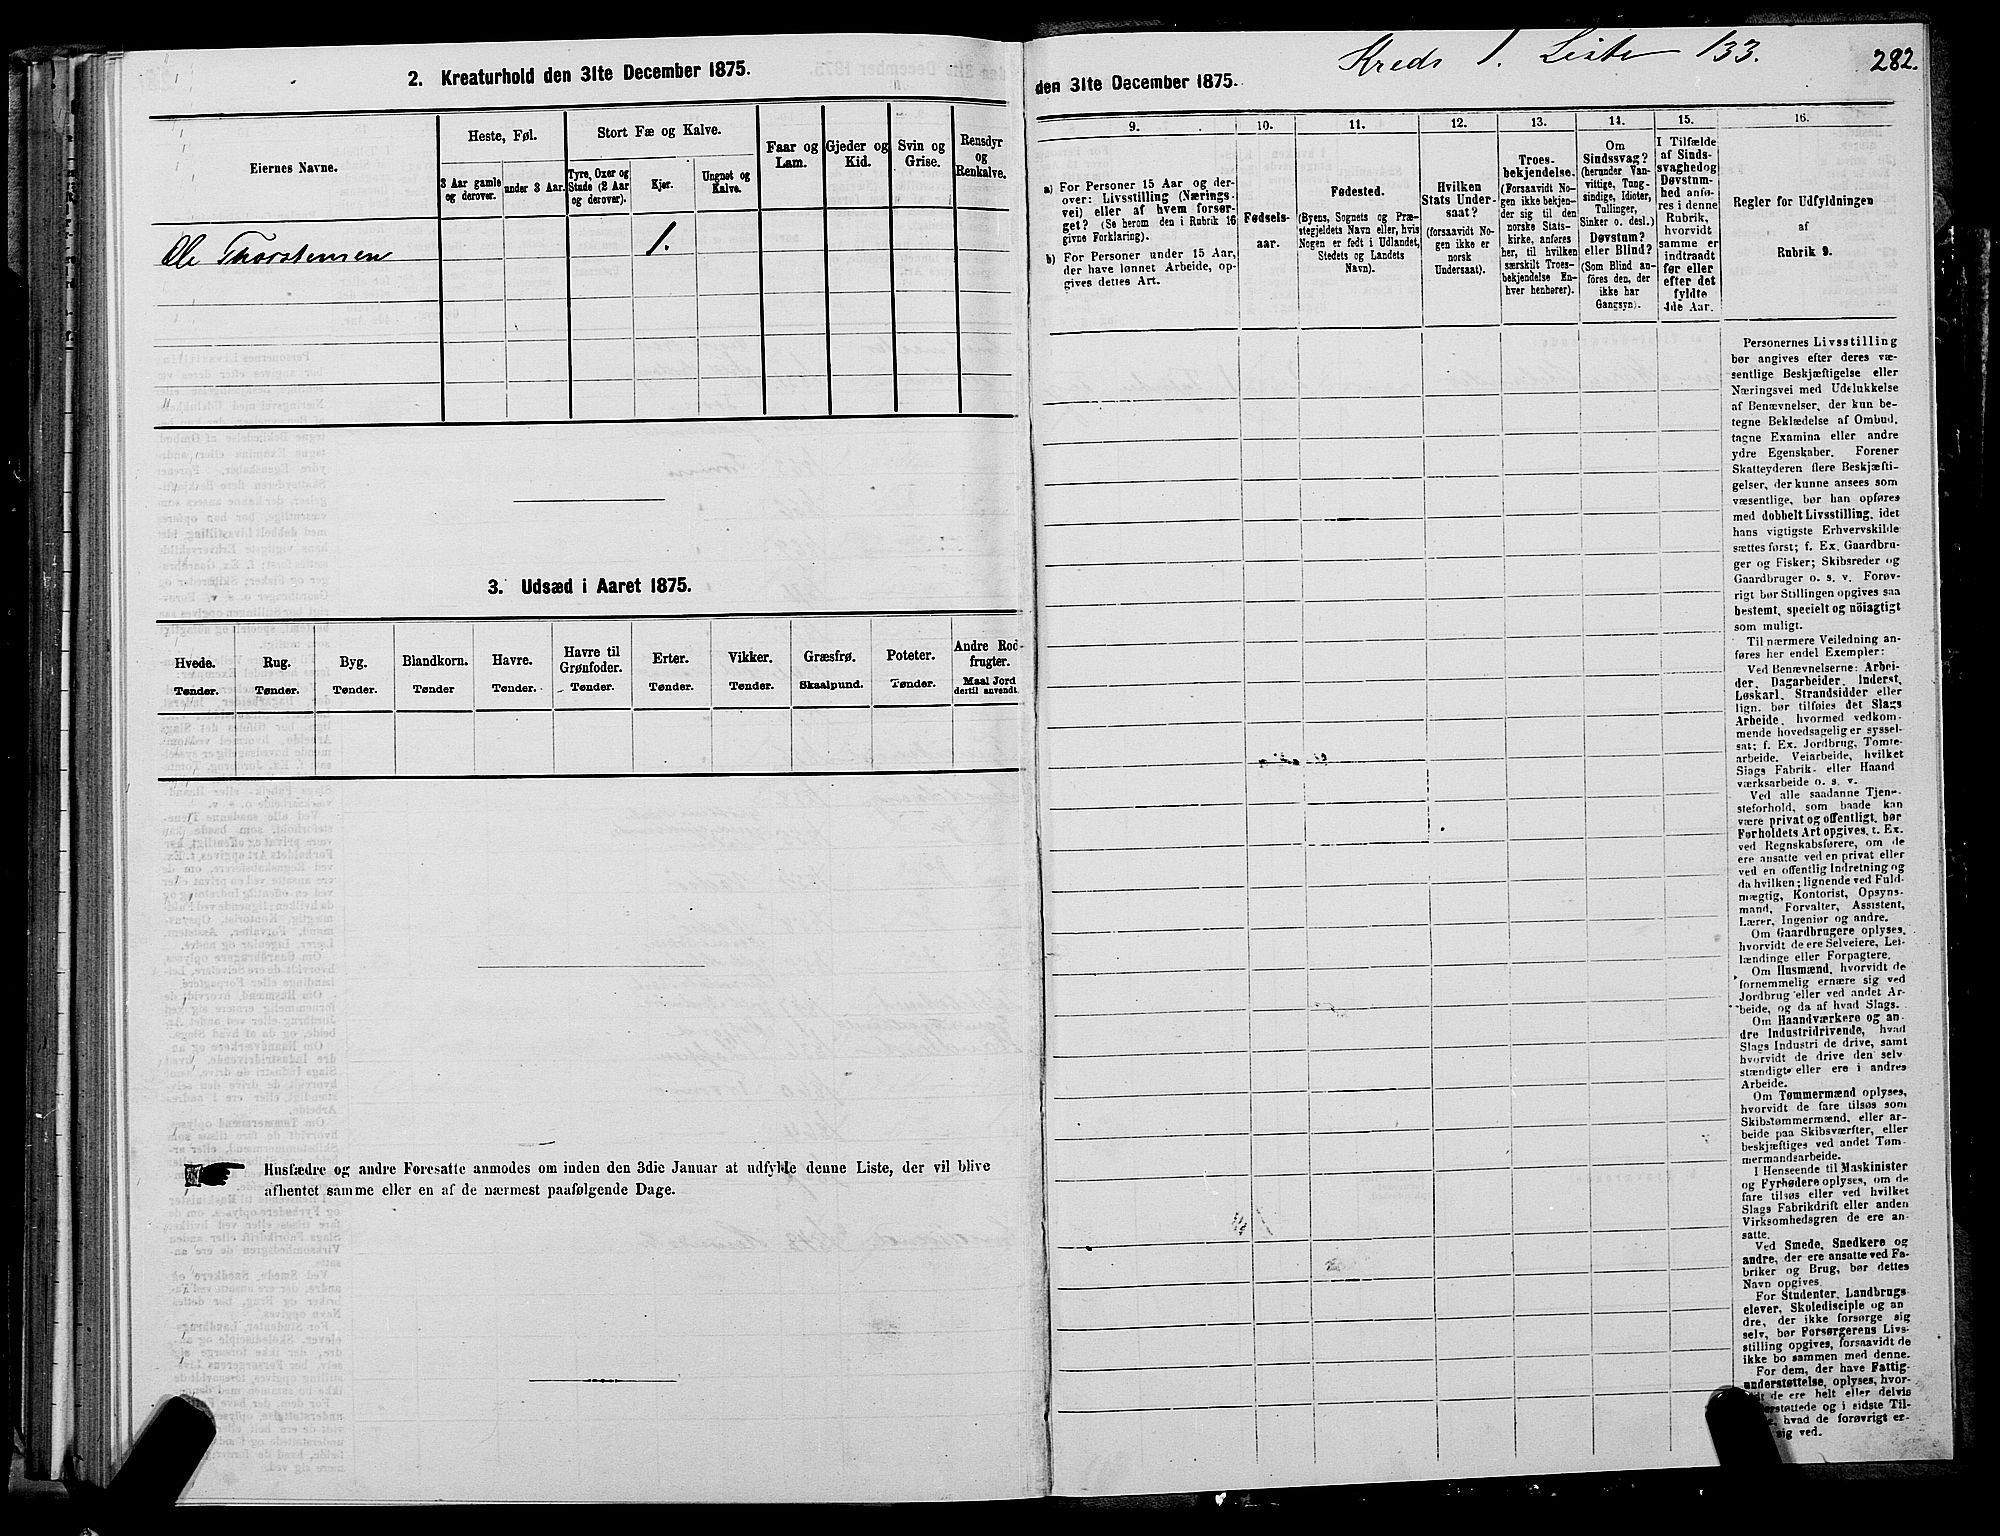 2. Kreaturhold den 31te December 1875.
Eiernes Navne.
Heste, Føl.
3 Aar gamle
og derover.
under 3 Aar.
Stort Fæ og Kalve.
Tyre, Oxer og
Stude (2 Aar
og derover).
Kjør.
Ungnøt og
Kalve.
Faar og
Lam.
Gjeder og
Kid.
Svin og
Grise.
Rensdyr
og
Renkalve.
Ole Thorstensen
1.
3. Udsæd i Aaret 1875.
Hvede.
Tønder.
Rug.
Tønder.
Byg.
Tønder.
Blandkorn.
Tønder
Havre.
Tønder.
Havre til
Grønfoder.
Tønder.
Erter.
Tønder.
Vikker.
Tønder.
Græsfrø.
Skaalpund.
Poteter.
Tønder.
Andre Rod-
frugter.
Maal Jord
dertil anvendt.
Husfædre og andre Foresatte anmodes om inden den 3die Januar at udfylde denne Liste, der vil blive
afhentet samme eller en af de nærmest paafølgende Dage.
Kreds 1. Liste 133.
282.
den 31te December 1875.
9.
a) For Personer 15 Aar og der-
over: Livsstilling (Nærings-
vei) eller af hvem forsør-
get? (Se herom den i Rubrik 16
givne Forklaring).
b) For Personer under 15 Aar,
der have lønnet Arbeide, op-
gives dettes Art.
10.
Fødsels-
aar.
11.
Fødested.
(Byens, Sognets og Præ-
stegjeldets Navn eller, hvis
Nogen er født i Udlandet,
Stedets og Landets
Navn).
12.
Hvilken
Stats Under-
saat?
(forsaavidt No-
gen ikke er
norsk
Undersaat).
13.
Troes-
bekjendelse.
(Forsaavidt No-
gen ikke bekjen-
der sig til den
norske Stats-
kirke, anføres
her, til hvilken
særskilt Troes-
bekjendelse En-
hver henhører).
14.
Om
Sindssvag?
(herunder Van-
vittige, Tung-
sindige, Idioter,
Tullinger,
Sinker o. desl.)
Døvstum?
eller Blind?
(Som Blind an-
føres den, der
ikke har
Gangsyn).
15.
I Tilfælde
af Sinds-
svaghed og
Døvstum-
hed anfø-
res i denne
Rubrik,
hvorvidt
samme er
indtraadt
før eller
efter det
fyldte
4de Aar.
16.
Regler for Udfyldningen
af
Rubrik 9.
Personernes Livsstilling
bør angives efter deres væ-
sentlige Beskjæftigelse eller
Næringsvei med Udelukkelse
af Benævnelser, der kun be-
tegne Beklædelse af Ombud,
tagne Examina eller andre
ydre Egenskaber. Forener
Skatteyderen flere Beskjæfti-
gelser, der kunne ansees som
væsentlige, bør han opføres
med dobbelt Livsstilling, idet
hans vigtigste Erhvervskilde
sættes først; f. Ex. Gaardbru-
ger og Fisker; Skibsreder og
Gaardbruger o. s. v. Forøv-
rigt bør Stillingen opgives saa
bestemt, specielt og nöiagtigt
som muligt.
Til nærmere Veiledning an-
føres her endel Exempler:
Ved Benævnelserne: Arbei-
der, Dagarbeider, Inderst,
Løskarl, Strandsidder eller
lign. bør tilføies det Slags
Arbeide, hvormed vedkom-
mende hovedsagelig er syssel-
sat; f. Ex. Jordbrug, Tomte-
arbeide, Veiarbeide, hvilket
Slags Fabrik- eller Haand
værksarbeide o. s. v.
Ved alle saadanne Tjen-
steforhold, som baade kan
være privat og offentligt, bør
Førholdets Art opgives, t. Ex.
ved Regnskabsførere, om de
ere ansatte ved en privat eller
ved en offentlig Indretning og
da hvilken; lignende ved Fuld-
mægtig, Kontorist, Opsyns-
mand, Forvalter, Assistent,
Lærer, Ingeniør og andre.
Om Gaardbrugere oplyses,
hvorvidt de ere Selveiere, Lei-
lændinge eller Forpagtere.
Om Husmænd, hvorvidt de
fornemmelig ernære sig ved
Jordbrug eller ved andet Ar-
beide, og da af hvad Slags.
Om Haandværkere og an-
dre Industridrivende, hvad
Slags Industri de drive, samt
hvorvidt de drive den selv
stændigt eller ere i andres
Arbeide.
Om Tømmermænd oplyses,
hvorvidt de fare tilsøs som
Skibstømmermænd, eller ar-
beide paa Skibsværfter, eller
beskjæftiges ved andet Tøm-
mermandsarbeide.
I Henseende til Maskinister
og Fyrbødere oplyses, om de
fare tilsøs eller ved hvilket
Slags Fabrikdrift eller anden
Virksomhedsgren de ere an-
satte.
Ved Smede, Snedkere og
andre, der ere ansatte ved Fa-
briker og Brug, bør dettes
Navn opgives.
For Studenter, Landbrugs
elever, Skoledisciple og an
dre, der ikke forsørge sig
selv, bør Forsørgerens Livs-
stilling opgives, forsaavidt de
ikke bo sammen med denne.
For dem, der have Fattig-
understøttelse, oplyses, hvor-
de ere helt eller delvis
og i sidste Til-
hvad de forøvrigt er-
sig ved.